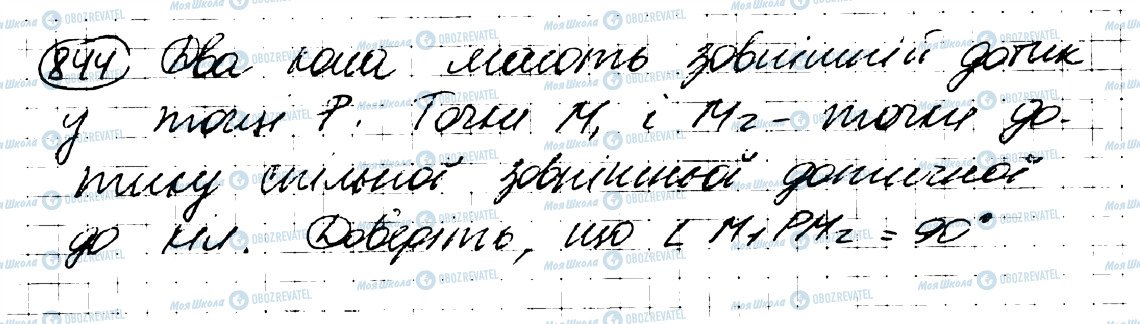 844 Два кола мають зовнішній дотик
у точці P. Точки M₁ і M₂ - точки до-
тику спільної зовнішньої дотичної
до кіл. Доведіть, що ∠ M₁PM₂ = 90°